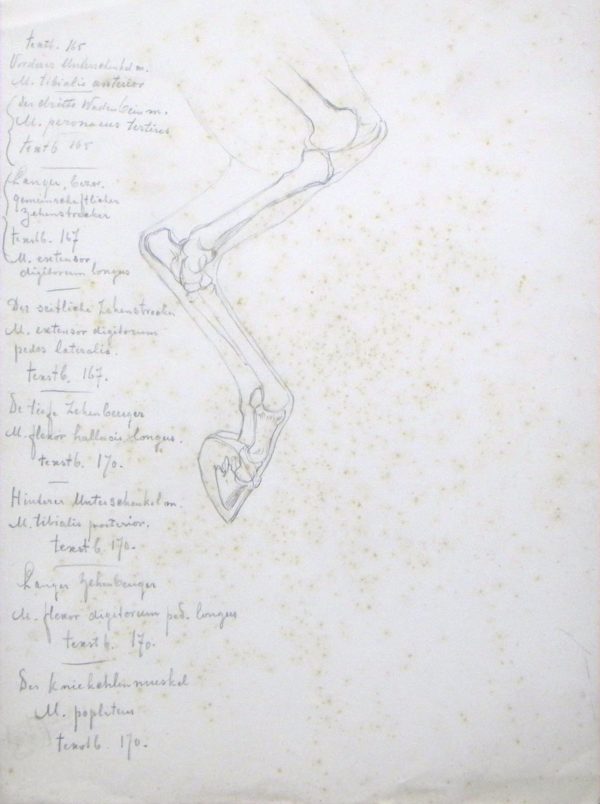 textb. 165
Vorderer Unterschenkel m.
M. tibialis anterior
der dritte Wadenbein m.
M. peronaeus tertius
textb 165
Langer, bezw.
gemeinschaftlicher
Zehenstrecker
textb. 167
M. extensor
digitorum longus
Der seitliche Zehenstrecker
M. extensor digitorum
pedis lateralis.
textb. 167.
De tiefe Zehenbeuger
M. flexor hallucis longus.
textb. 170.
Hinterer Unterschenkel m.
M. tibialis posterior.
textb. 170.
Langer Zehenbeuger
M. flexor digitorum ped. longus
textb. 170.
Der Kniekehlenmuskel
M. popliteus
textb. 170.